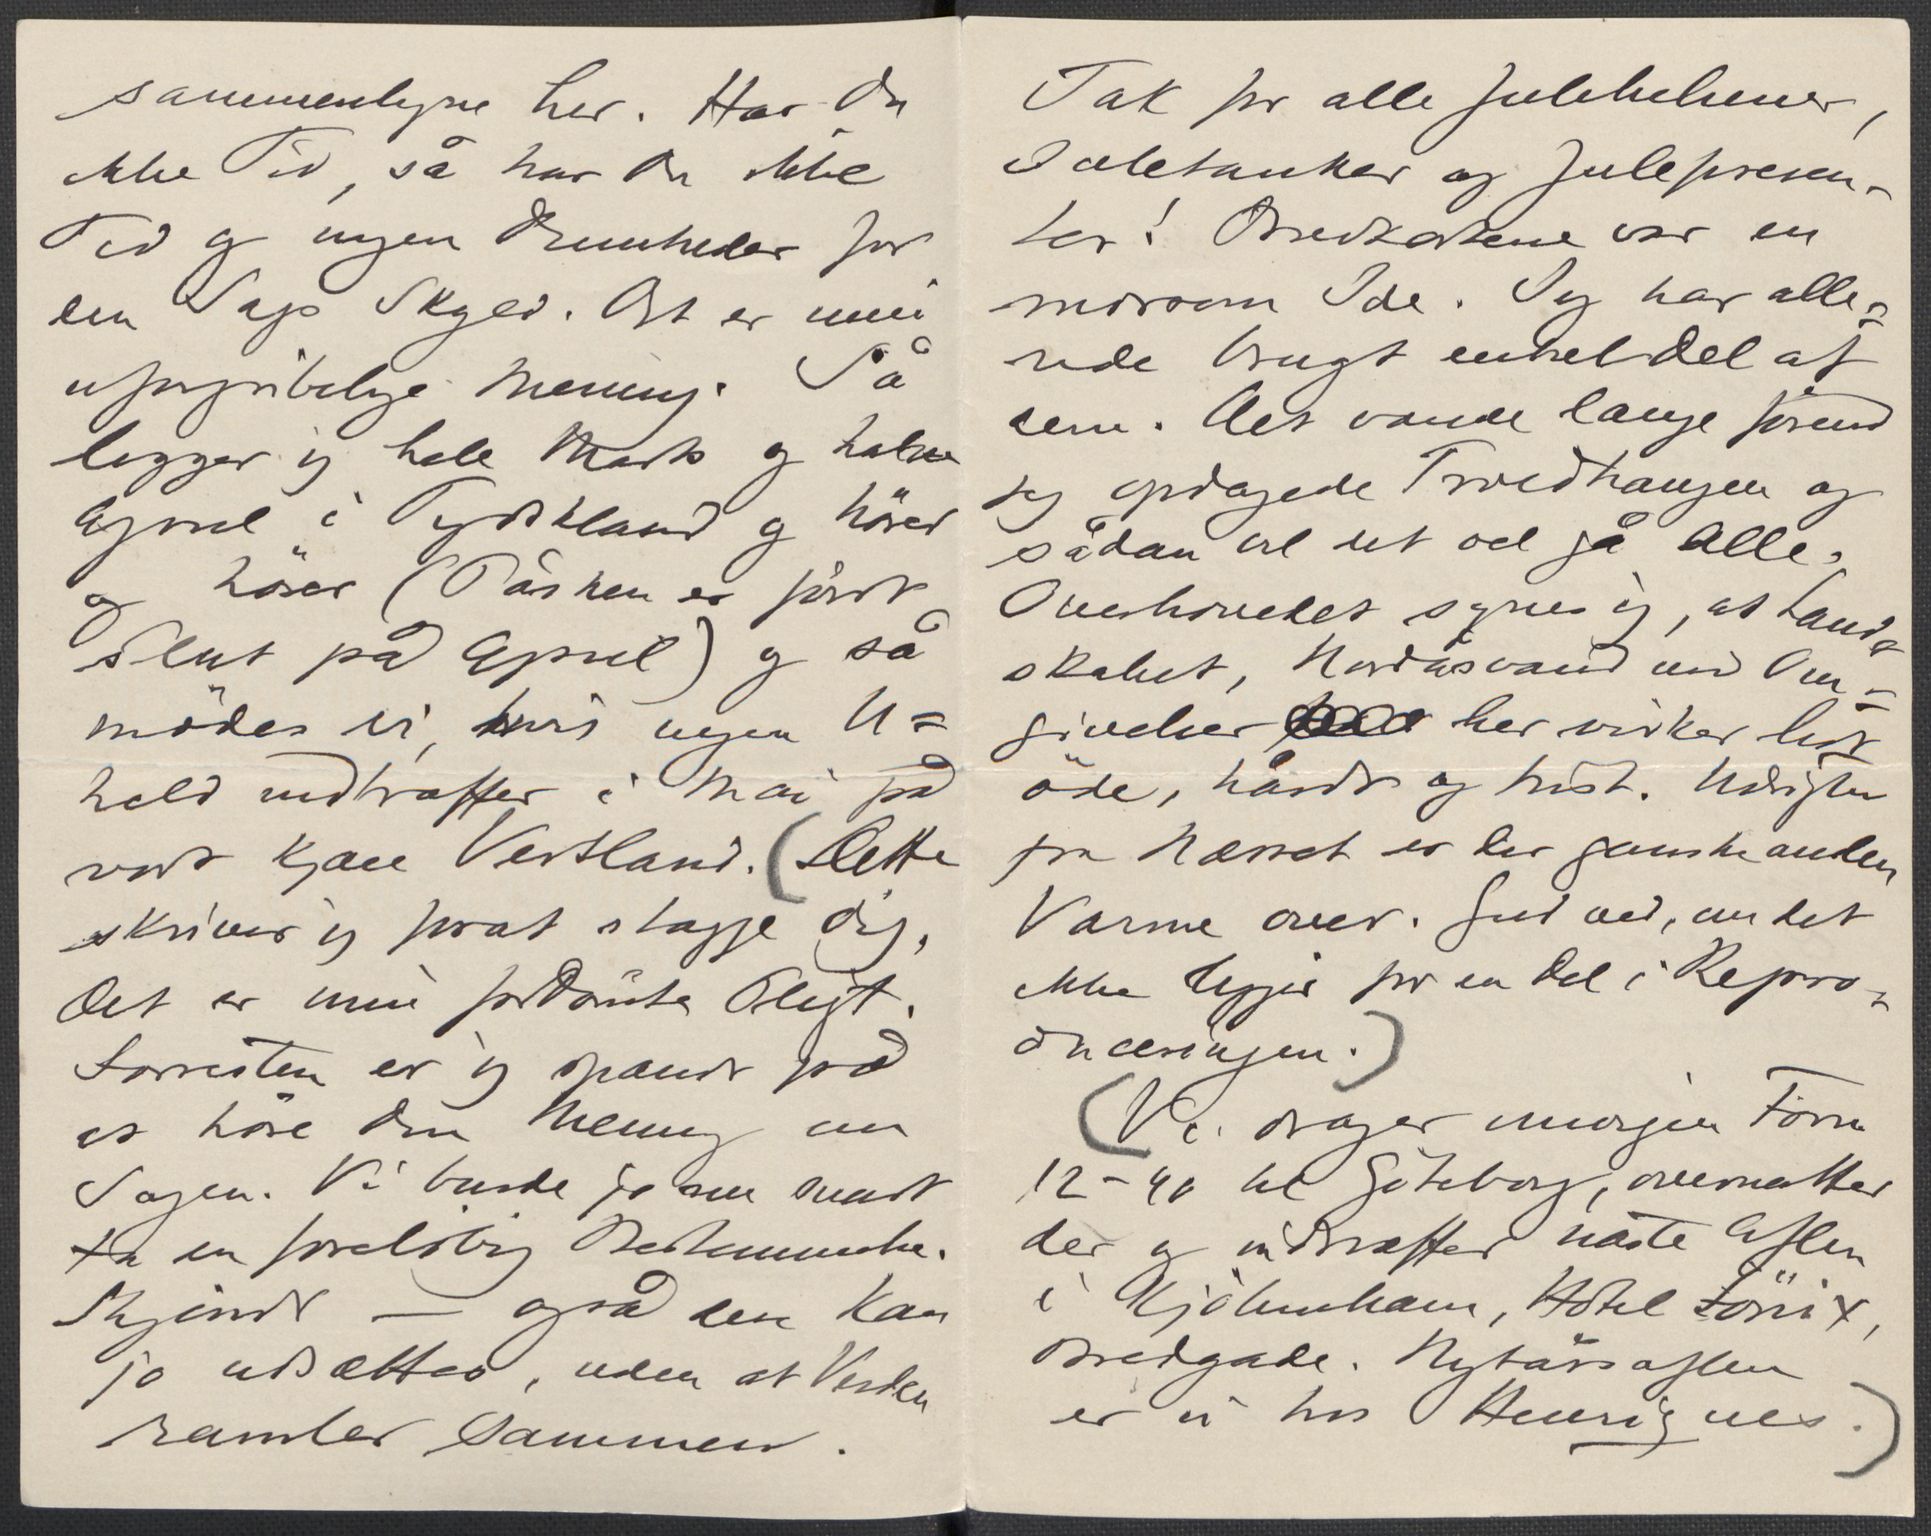 sammenligne her. Har Du
ikke Tid, så har Du ikke
Tid og ingen Dumheder for
den Sags Skyld. Det er min
uforgribelige Mening. Så
lægger jeg hele Marts og halve
April i Tydskland og hører
og hører (Påsken er først
Slut på April) og så
mødes vi, hvis ingen U=
held indtræffer i Mai på
vort kjære Vestland. (Dette
skriver jeg for at stagge dig,
Det er min fordømte Pligt.
Forresten er jeg spændt på
at høre din Mening om
Sagen. Vi burde jo nu snart
ta en foreløbig Bestemmelse.
Skjøndt — også den kan
jo udsættes, uden at Verden
ramler sammen.
Tak for alle Julehilsener,
Juletanker og Julepresen-
ter! Brevkortene var en
morsom Ide. Jeg har alle=
rede brugt en hel del af
dem. Det varede længe førend
jeg opdagede Troldhaugen og
sådan vil det vel gå Alle.
Overhovedet synes jeg, at Land=
skabet, Nordåsvand med Om=
givelser her virker lidt
øde, hårdt og trist. Udsigten
fra Næsset er der ganske anden
Varme over. Gud ved, om det
ikke ligger for en Del i Repro=
duceringen.)
(Vi drager imorgen Form
12-40 til Göteborg, overnatter
der og indtræffer næste Aften
i Kjøbenhavn, Hôtel Fönix,
Bredgade. Nytårsaften
er vi hos Henriques.)